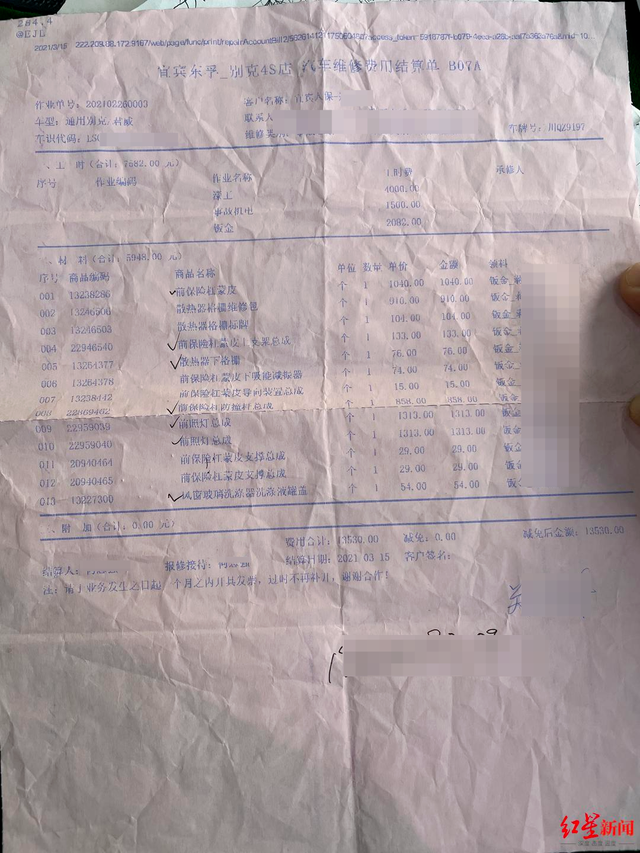 284.4
@EJL
2021/3/15
宜宾东孚_别克4S店 汽车维修费用结算单 B07A
作业单号: 202102260003
客户名称: 宜宾人保
车型: 通用别克 君威
联系人
车牌号: 川QZ9197
车识代码: LSG
一、工 时(合计: 7582.00 元)
序号 作业编码 作业名称 工时费 承修人
漆工 4000.00
事故机电 1500.00
钣金 2082.00
二、材 料(合计: 5948.00 元)
序号 商品编码 商品名称 单位 数量 单价 金额 领料
001 13238286 前保险杠蒙皮 个 1 1040.00 1040.00 钣金
002 13246506 散热器格栅维修包 个 1 910.00 910.00 钣金
003 13246503 散热器格栅标牌 个 1 104.00 104.00 钣金
004 22946540 前保险杠蒙皮上支架总成 个 1 133.00 133.00 钣金
005 13264377 散热器下格栅 个 1 76.00 76.00 钣金
006 13264378 前保险杠蒙皮下吸能减振器 个 1 74.00 74.00 钣金
007 13238442 前保险杠蒙皮导向装置总成 个 1 15.00 15.00 钣金
008 22869462 前保险杠防撞杆总成 个 1 858.00 858.00 钣金
009 22959039 前照灯总成 个 1 1313.00 1313.00 钣金
010 22959040 前照灯总成 个 1 1313.00 1313.00 钣金
011 20940464 前保险杠蒙皮支撑总成 个 1 29.00 29.00 钣金
012 20940465 前保险杠蒙皮支撑总成 个 1 29.00 29.00 钣金
013 13227300 风窗玻璃洗涤器洗涤液罐盖 个 1 54.00 54.00 钣金
三、附 加(合计: 0.00 元)
费用合计: 13530.00 减免: 0.00 减免后金额: 13530.00
结算人: 报修接待: 结算日期: 2021 03 15 客户签名:
注: 请于业务发生之日起一个月之内开具发票, 过时不再补开, 谢谢合作!
红星新闻